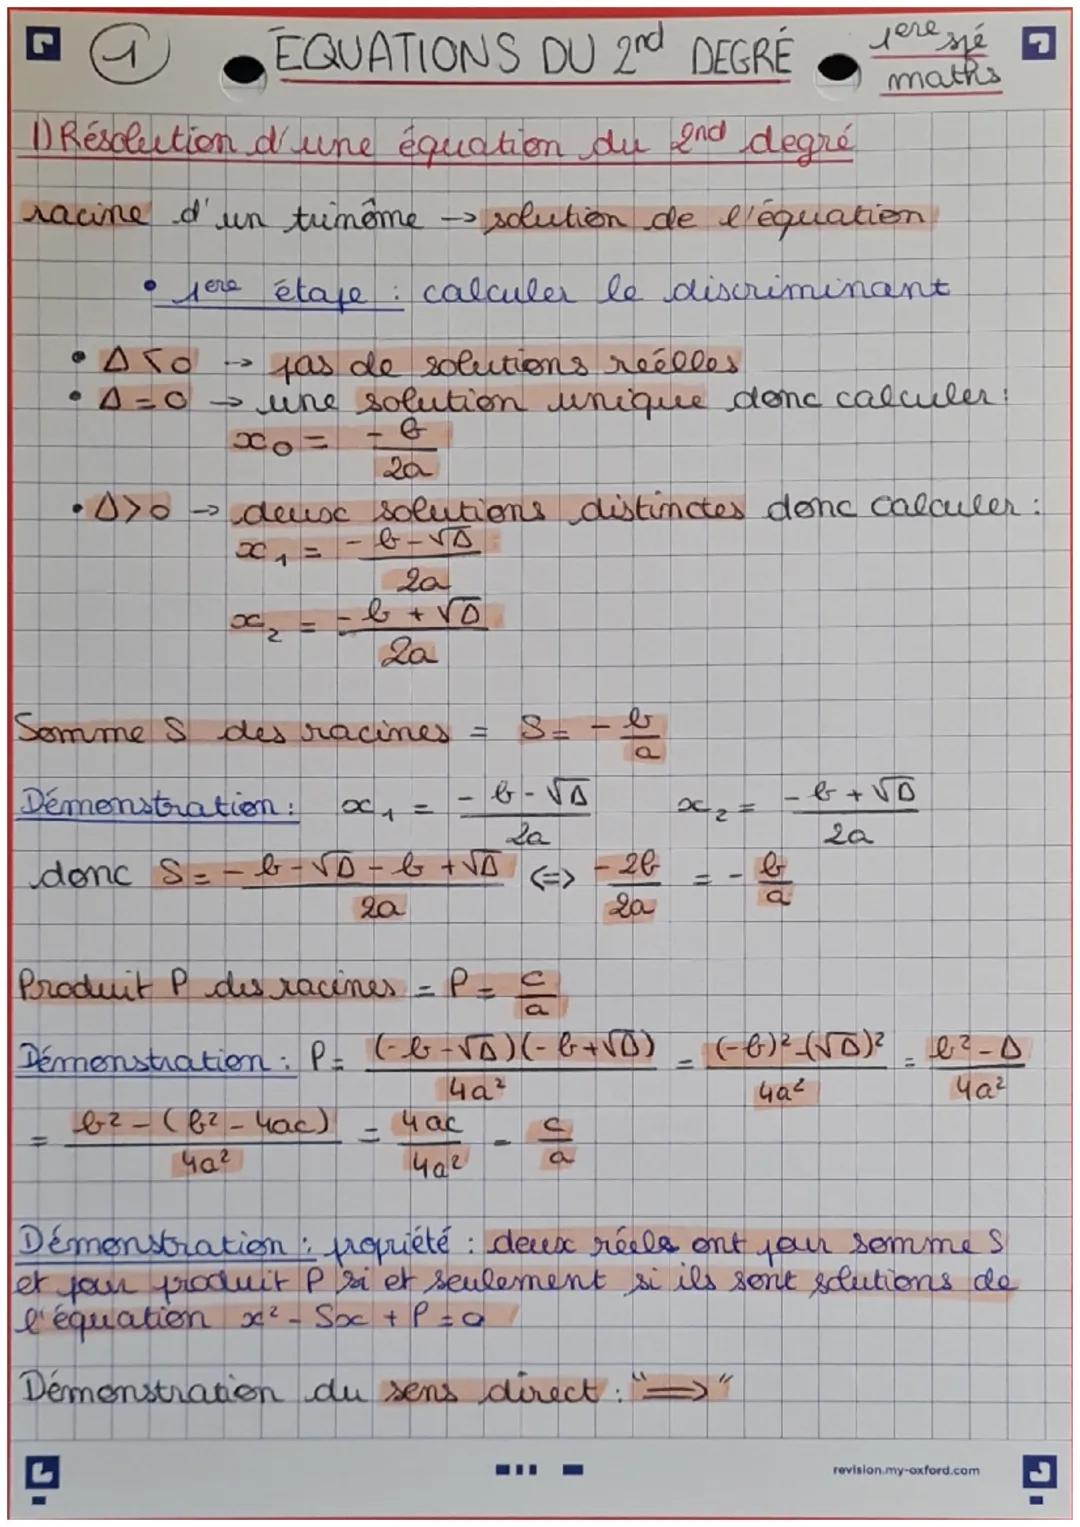 1
ÉQUATIONS DU 2nd DEGRÉ
1ere spé
maths
1) Résolution d'une équation du 2nd degré
racine d'un trinôme → solution de l'équation
• 1ere étape : calculer le discriminant
• Δ < 0 → pas de solutions reélles
• Δ = 0 → une solution unique donc calculer :
x₀ = -b/2a
• Δ > 0 → deux solutions distinctes donc calculer :
x₁ = (-b-√Δ)/2a
x₂ = (-b+√Δ)/2a
Somme S des racines = S = -b/a
Démonstration : x₁ = (-b-√Δ)/2a x₂ = (-b+√Δ)/2a
donc S = (-b-√Δ-b+√Δ)/2a <=> -2b/2a = -b/a
Produit P des racines = P = c/a
Démonstration : P = (-b-√Δ)(-b+√Δ)/4a² = ((-b)²-(√Δ)²)/4a² = (b²-Δ)/4a²
= (b²-(b²-4ac))/4a² = 4ac/4a² = c/a
Démonstration : propriété : deux réels ont pour somme S
et pour produit P si et seulement si ils sont solutions de
l'équation x² - Sx + P = 0
Démonstration du sens direct : "⟹"
revision.my-oxford.com